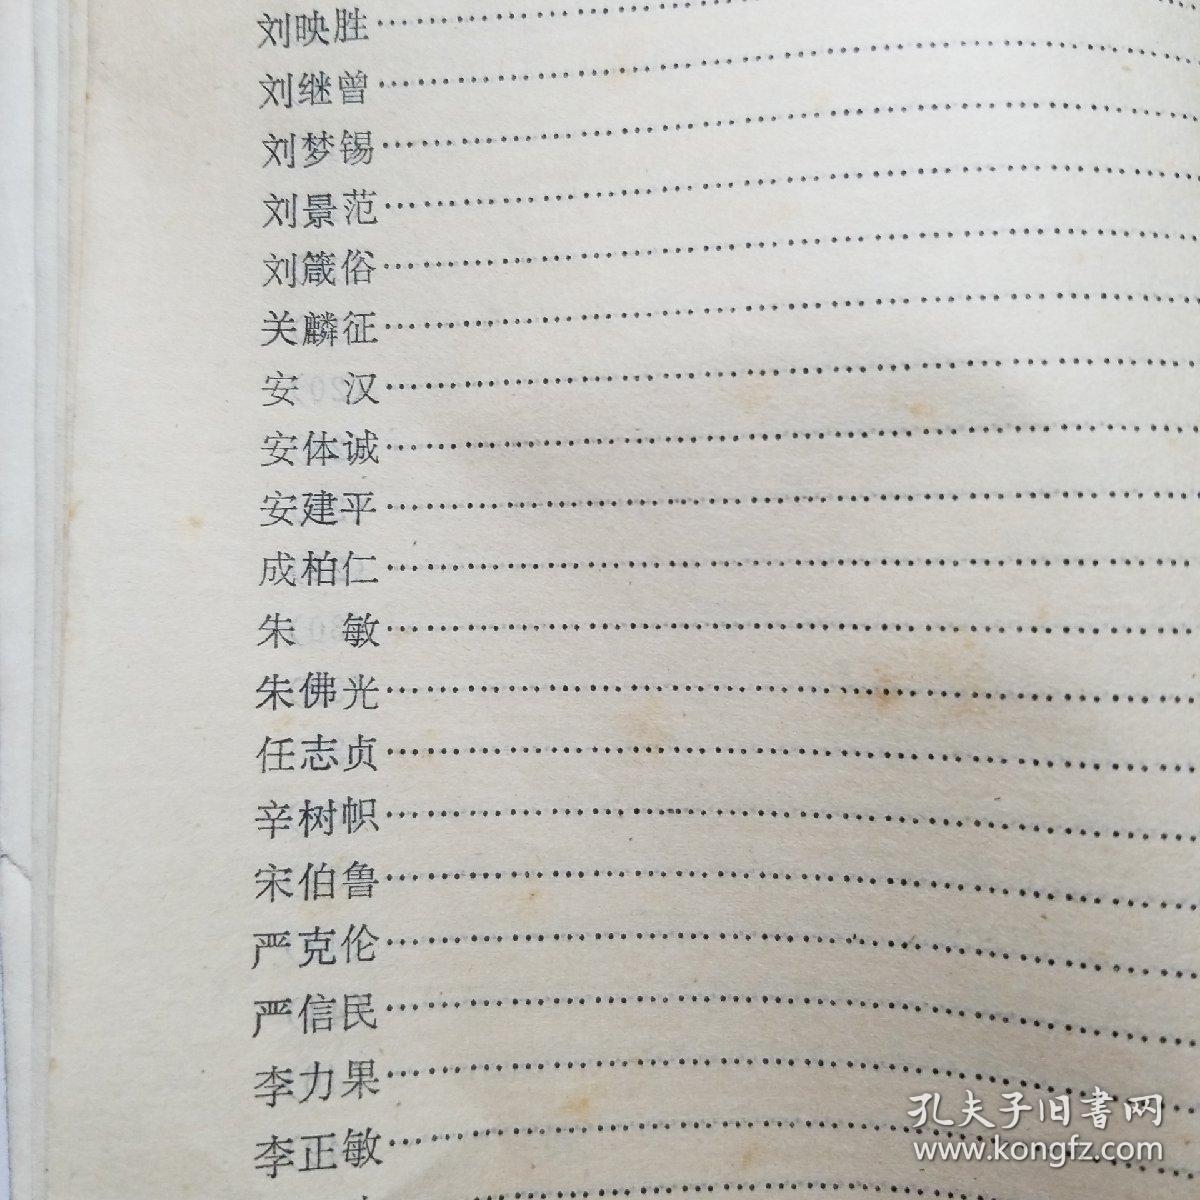 刘映胜⋯⋯⋯⋯⋯⋯⋯⋯⋯⋯⋯⋯⋯⋯
刘继曾⋯⋯⋯⋯⋯⋯⋯⋯⋯⋯⋯⋯⋯⋯
刘梦锡⋯⋯⋯⋯⋯⋯⋯⋯⋯⋯⋯⋯⋯⋯
刘景范⋯⋯⋯⋯⋯⋯⋯⋯⋯⋯⋯⋯⋯⋯
刘箴俗⋯⋯⋯⋯⋯⋯⋯⋯⋯⋯⋯⋯⋯⋯
关麟征⋯⋯⋯⋯⋯⋯⋯⋯⋯⋯⋯⋯⋯⋯
安 汉⋯⋯⋯⋯⋯⋯⋯⋯⋯⋯⋯⋯⋯⋯
安体诚⋯⋯⋯⋯⋯⋯⋯⋯⋯⋯⋯⋯⋯⋯
安建平⋯⋯⋯⋯⋯⋯⋯⋯⋯⋯⋯⋯⋯⋯
成柏仁⋯⋯⋯⋯⋯⋯⋯⋯⋯⋯⋯⋯⋯⋯
朱 敏⋯⋯⋯⋯⋯⋯⋯⋯⋯⋯⋯⋯⋯⋯
朱佛光⋯⋯⋯⋯⋯⋯⋯⋯⋯⋯⋯⋯⋯⋯
任志贞⋯⋯⋯⋯⋯⋯⋯⋯⋯⋯⋯⋯⋯⋯
辛树帜⋯⋯⋯⋯⋯⋯⋯⋯⋯⋯⋯⋯⋯⋯
宋伯鲁⋯⋯⋯⋯⋯⋯⋯⋯⋯⋯⋯⋯⋯⋯
严克伦⋯⋯⋯⋯⋯⋯⋯⋯⋯⋯⋯⋯⋯⋯
严信民⋯⋯⋯⋯⋯⋯⋯⋯⋯⋯⋯⋯⋯⋯
李力果⋯⋯⋯⋯⋯⋯⋯⋯⋯⋯⋯⋯⋯⋯
李正敏⋯⋯⋯⋯⋯⋯⋯⋯⋯⋯⋯⋯⋯⋯
孔夫子旧書网
www.kongfz.com